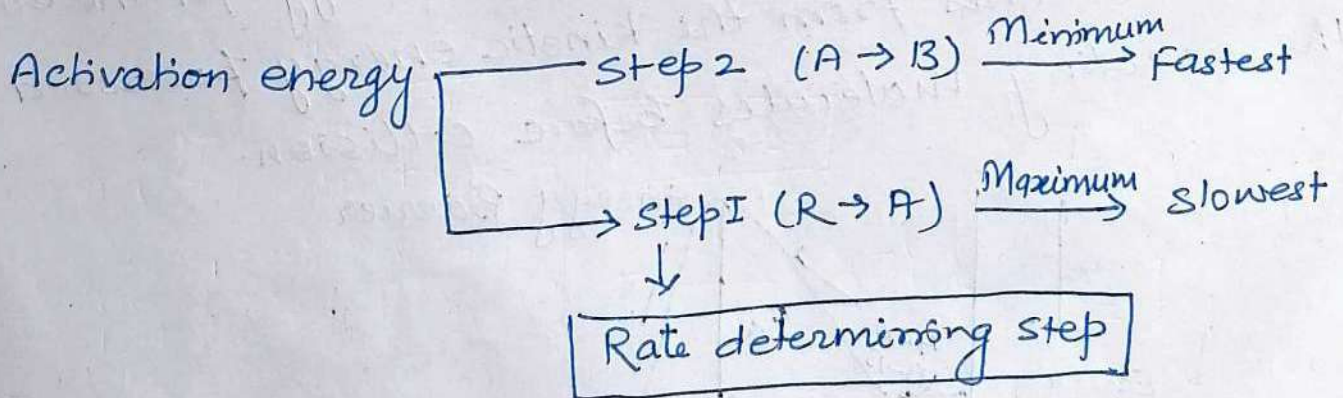 Activation energy
Step 2 (A → B) Minimum Fastest
Step I (R → A) Maximum slowest
Rate determining step